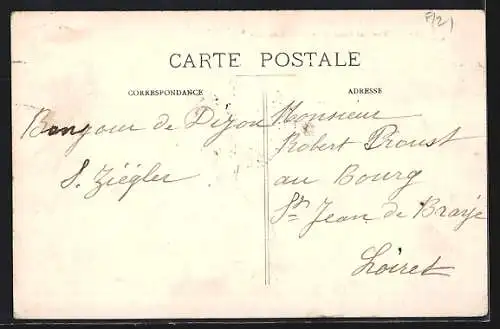 F/21
CARTE POSTALE
CORRESPONDANCE
ADRESSE
Bonjour de Dijon
S. Ziégler
Monsieur
Robert Proust
au Bourg
St Jean de Braye
Loiret